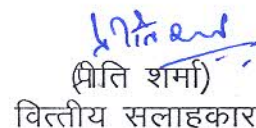 (प्रीति शर्मा)
वित्तीय सलाहकार